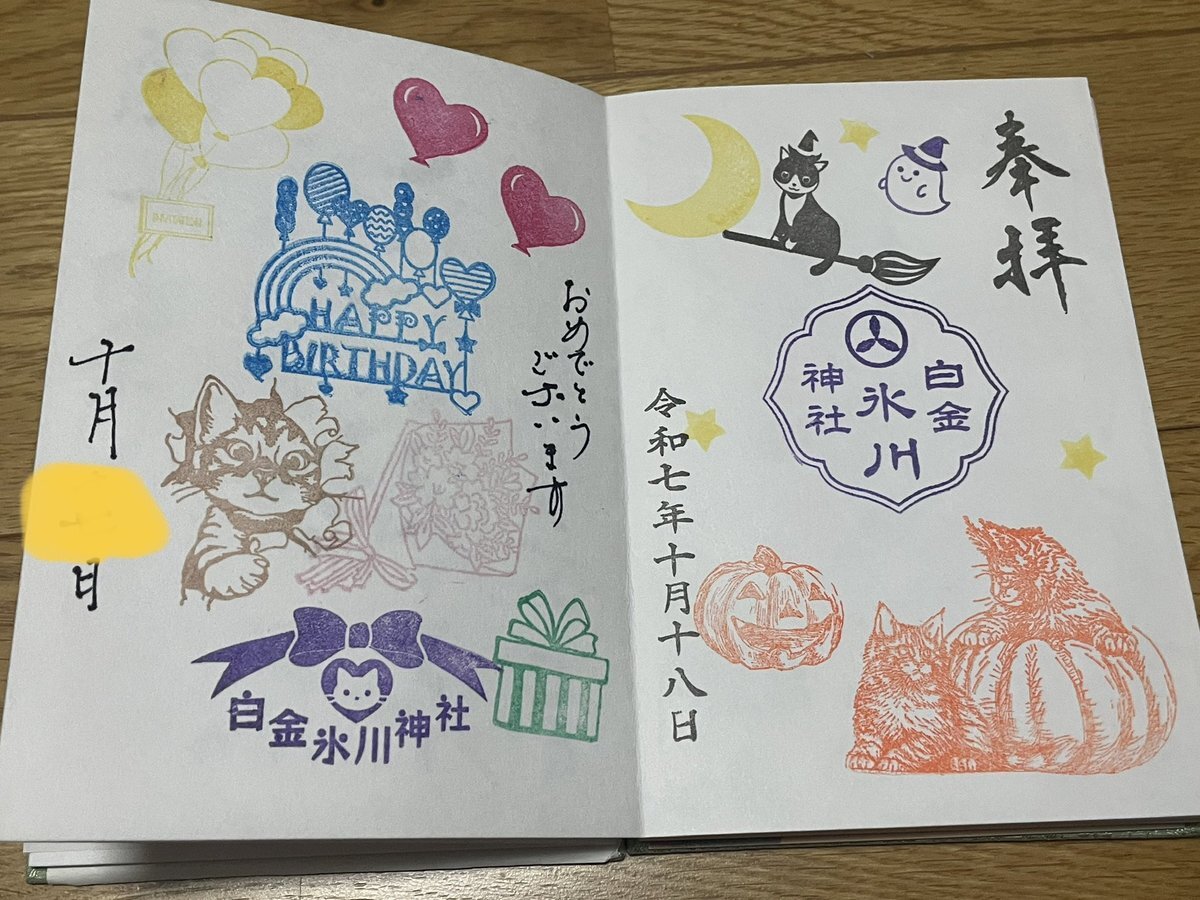 奉拝
白金
氷川
神社
令和七年十月十八日
おめでとう
ございます
HAPPY
BIRTHDAY
十月
日
白金氷川神社